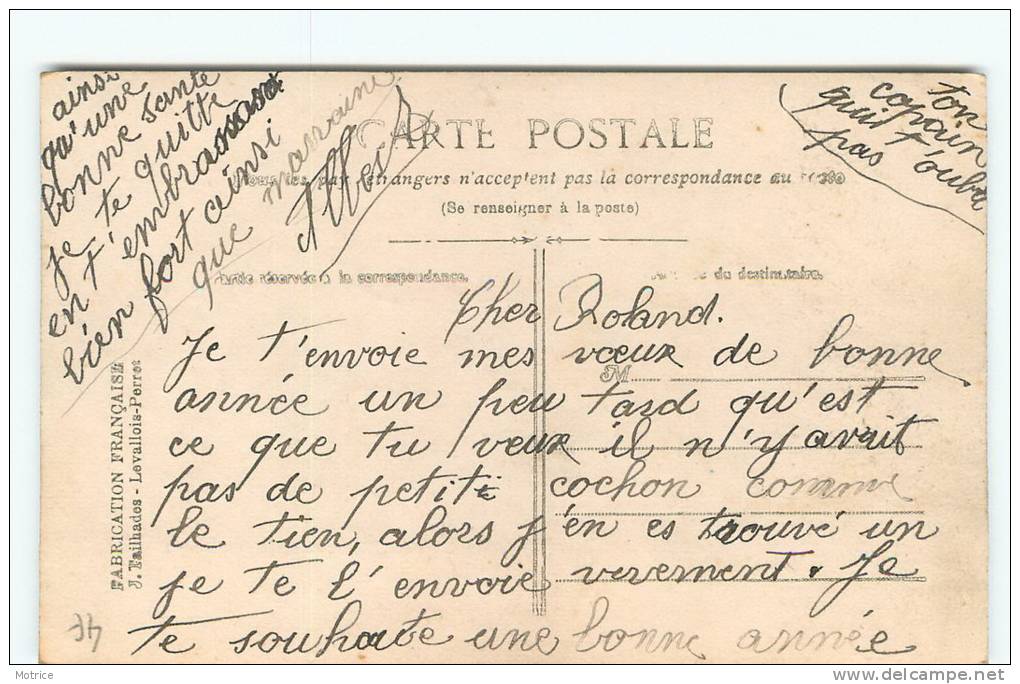 CARTE POSTALE
Tous les pays étrangers n'acceptent pas la correspondance au
(Se renseigner à la poste)
Partie réservée à la correspondance.
du destinataire.
Cher Roland.
Je t'envoie mes vœux de bonne
M
année un peu tard qu'est
ce que tu veux il n'y avait
pas de petite cochon comme
le tien, alors j'en es trouvé un
je te l'envoie. Je
te souhaite une bonne année
ainsi
qu'une
bonne santé
je te quitte
en t'embrassant
bien fort ainsi
que marraine
ton
copain
quit t'oublie
pas
FABRICATION FRANÇAISE
J. Failhades - Levallois-Perret
Motrice
delcampe.net